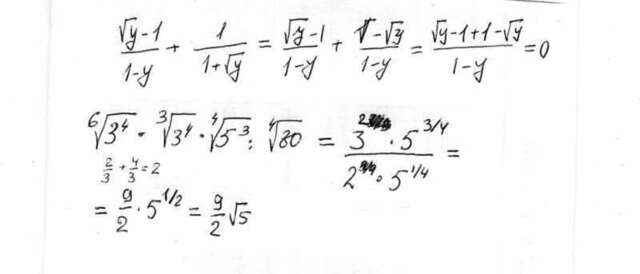 (√y-1)/(1-y) + 1/(1+√y) = (√y-1)/(1-y) + (1-√y)/(1-y) = (√y-1+1-√y)/(1-y) = 0
⁶√3⁴ · ³√3⁴ · ⁴√5³ : ⁴√80 = (3² · 5^(3/4))/(2 · 5^(1/4)) =
2/3 + 4/3 = 2
= 9/2 · 5^(1/2) = 9/2 √5